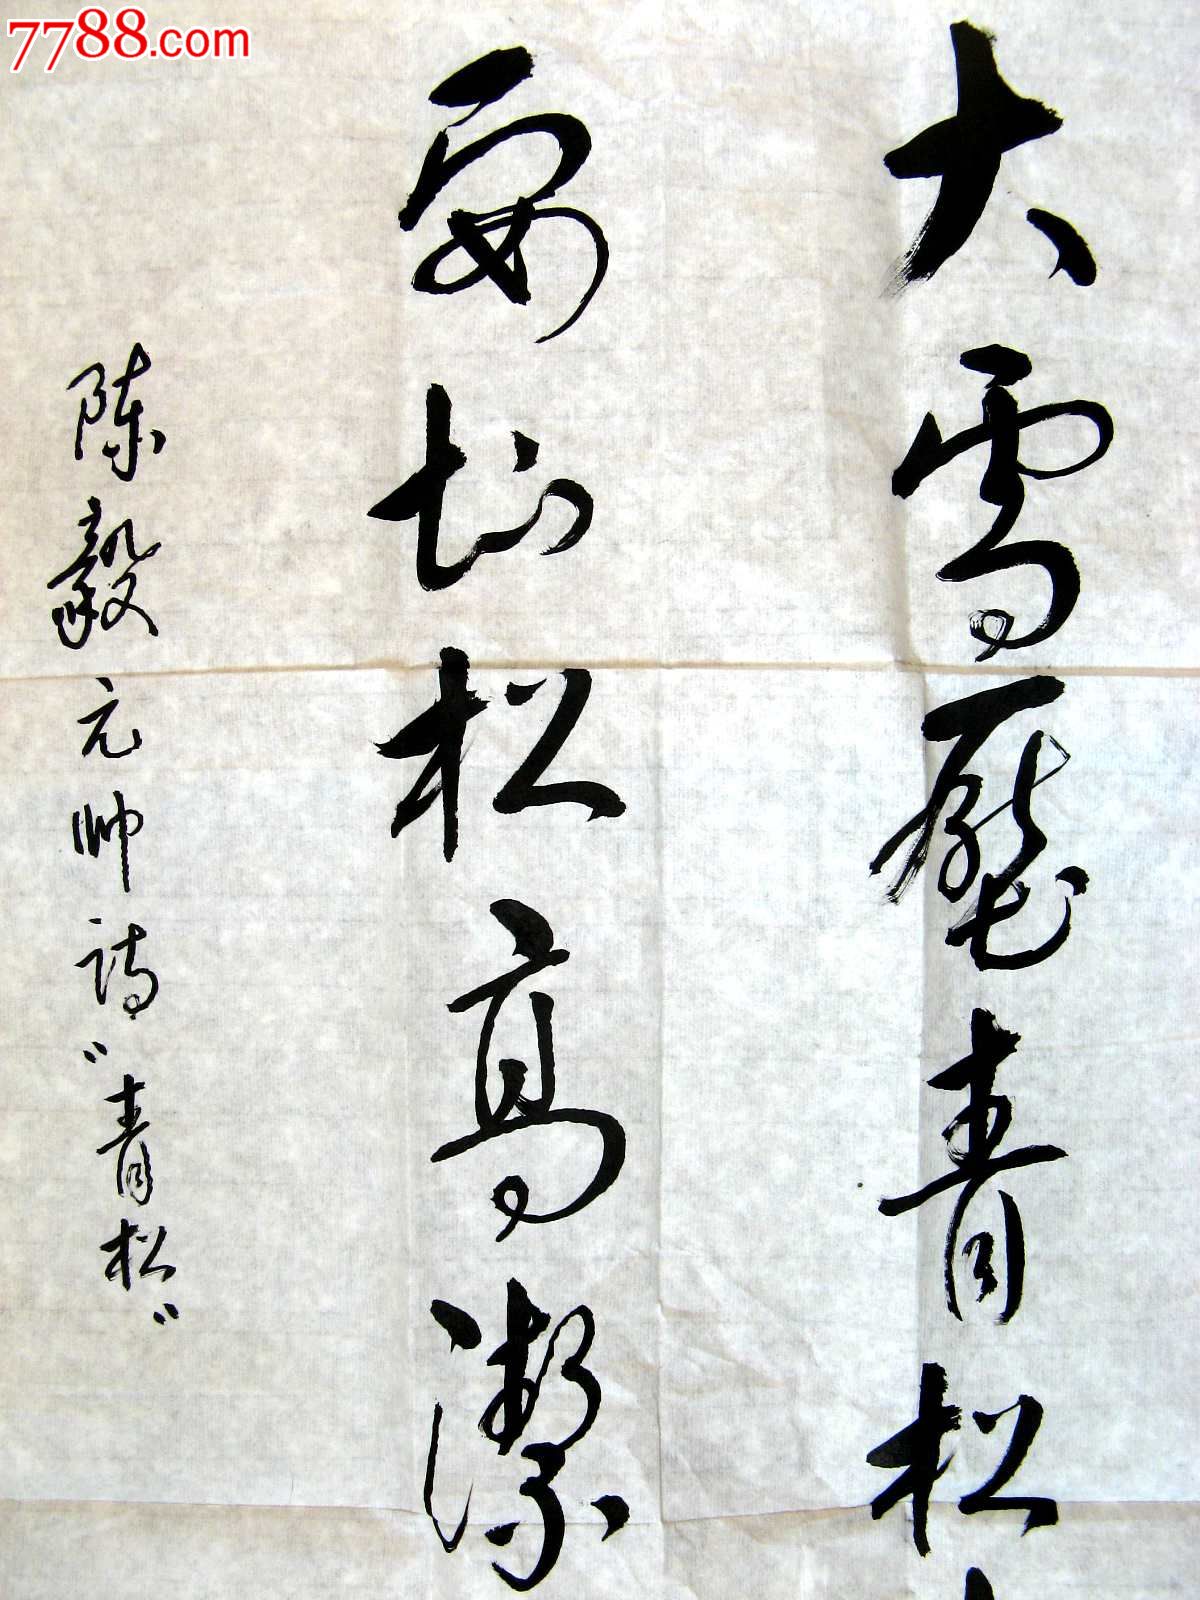 7788.com
大雪壓青松
要知松高潔
陳毅元帅詩“青松”